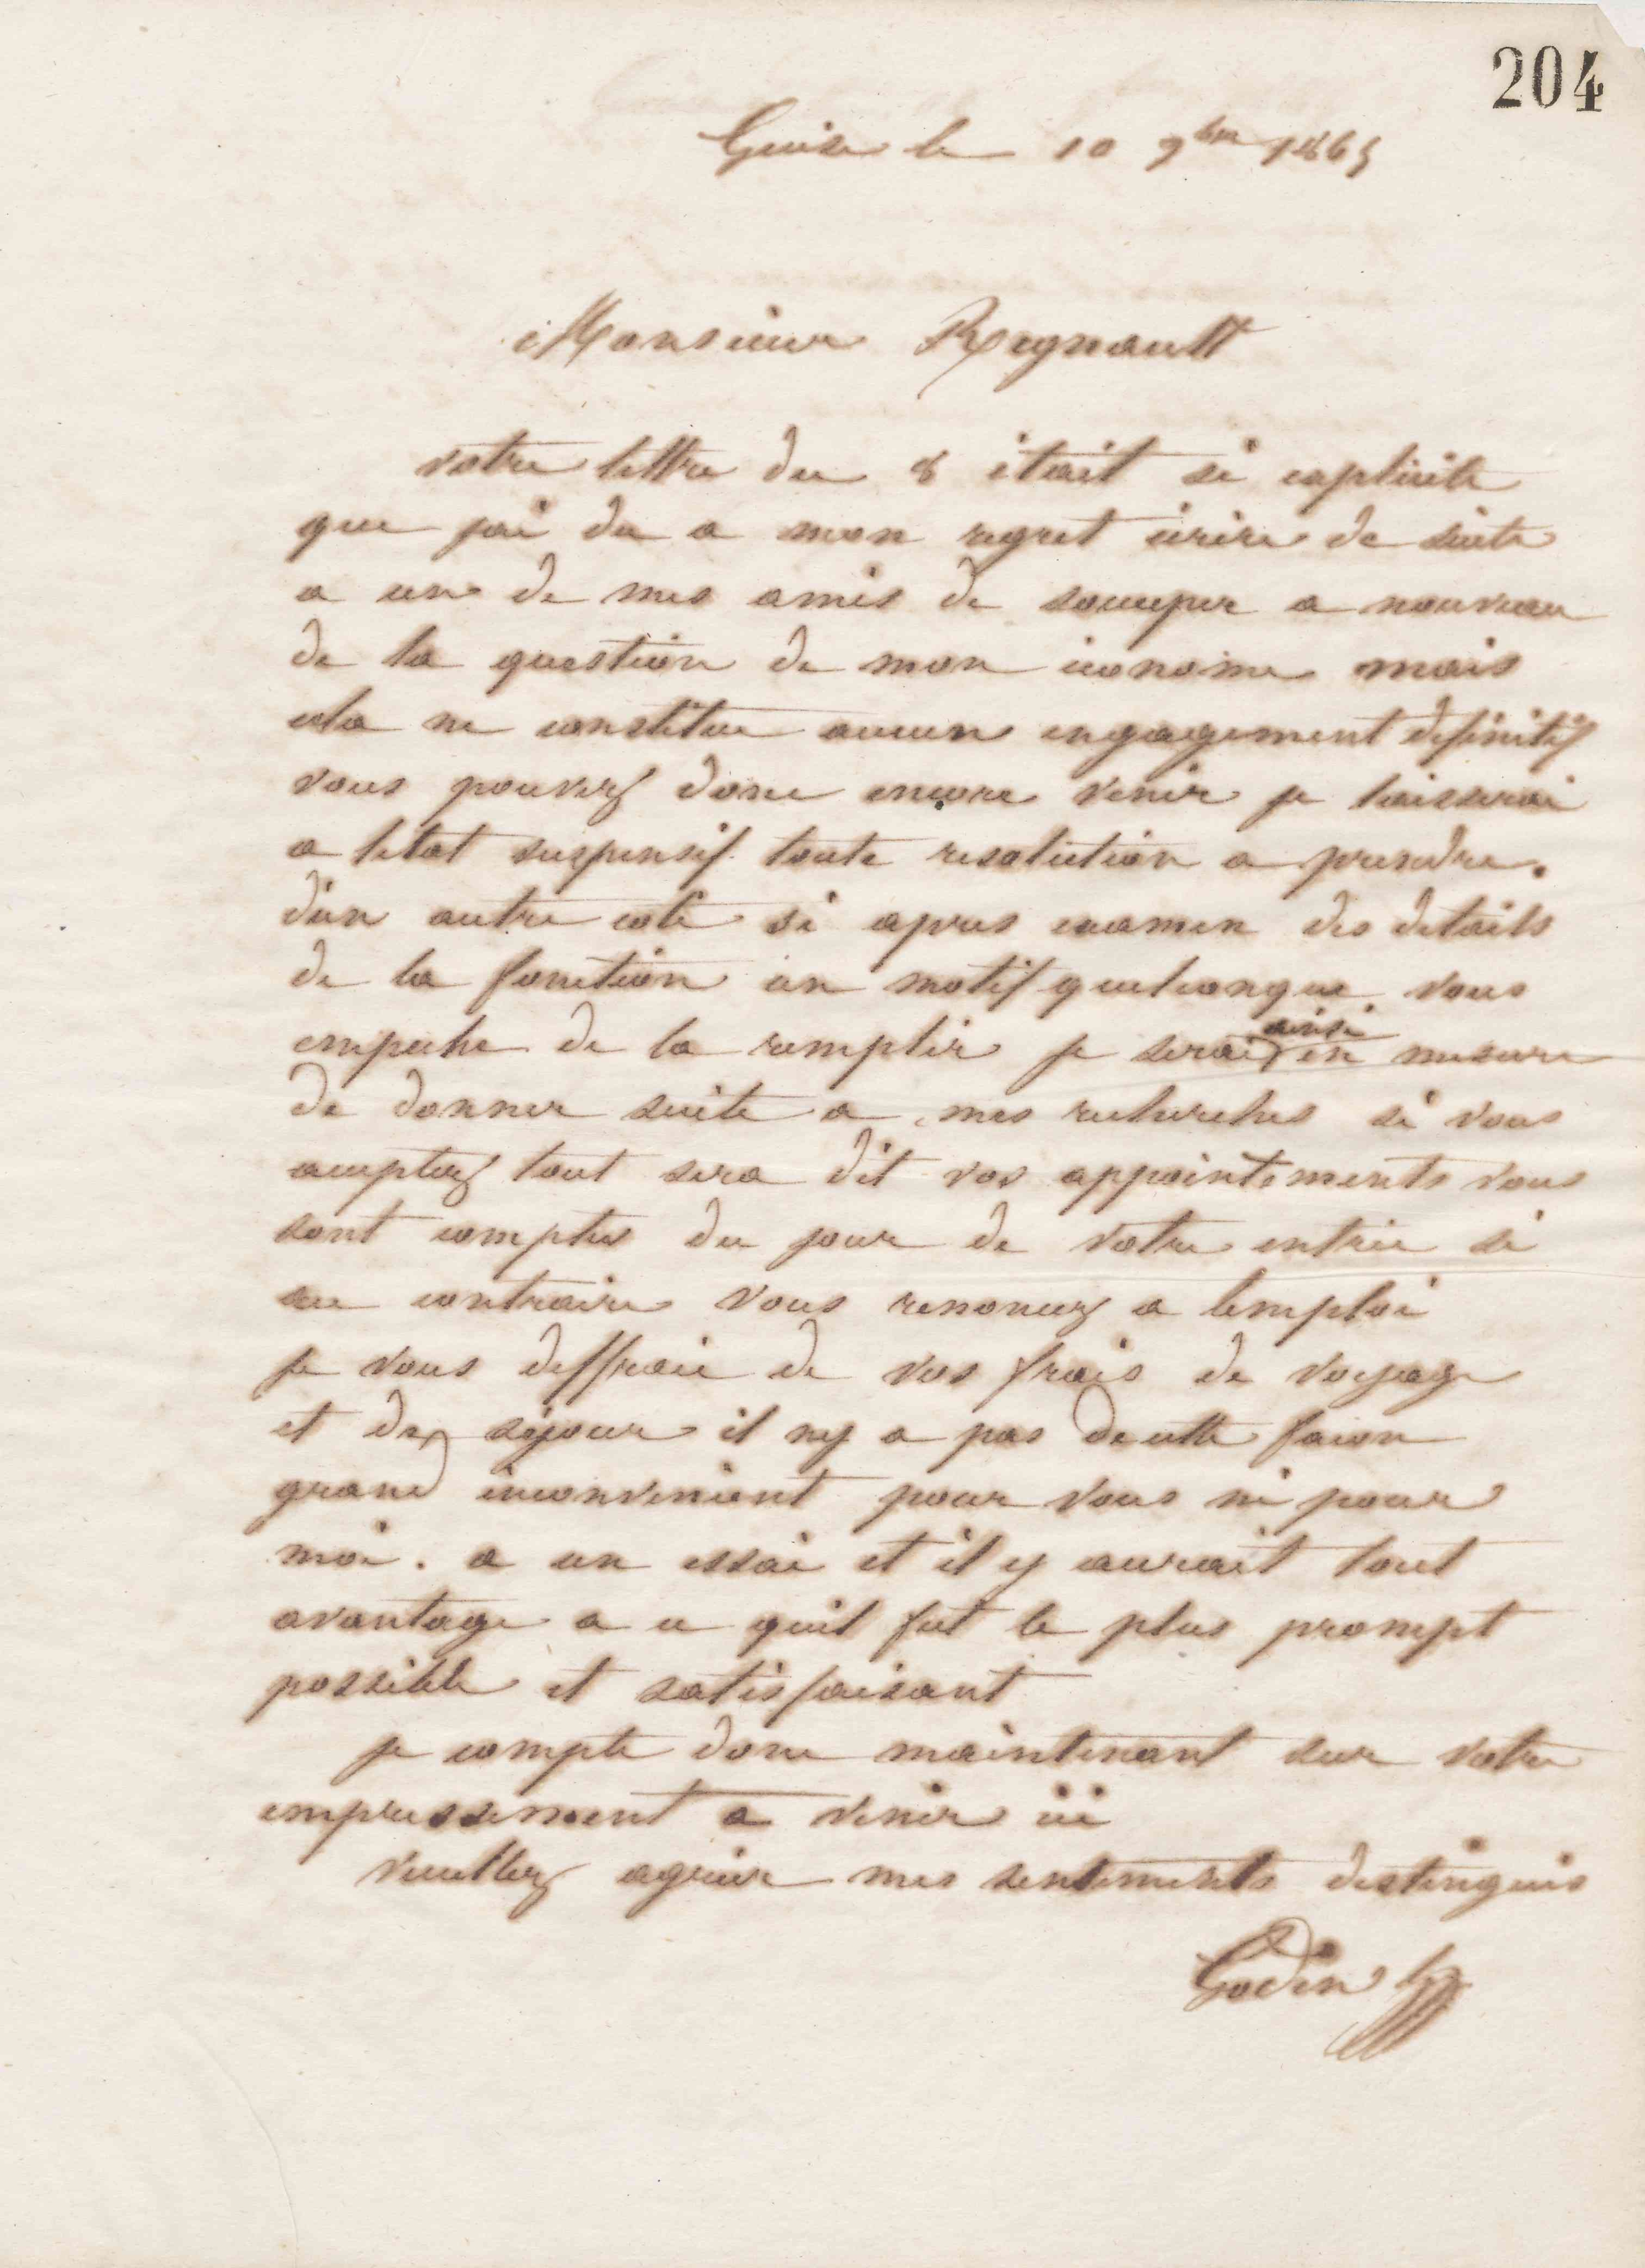 204
Guise le 10 9bre 1865
Monsieur Regnault
votre lettre du 8 était si explicite
que jai du a mon regret écrire de suite
a un de mes amis de soccuper a nouveau
de la question de mon économe mais
cela ne constitue aucun engagement définitif
vous pouvez donc encore venir je laisserai
a letat suspensif toute resolution a prendre.
d'un autre coté si apres examen des details
de la fonction un motif quelconque vous
empeche de la remplir je serai ainsi en mesure
de donner suite a mes recherches si vous
acceptez tout sera dit vos appointements vous
sont comptés du jour de votre entrée si
au contraire vous renoncez a lemploi
je vous deffraie de vos frais de voyage
et de séjour il ny a pas de cette facon
grand inconvenient pour vous ni pour
moi. a un essai et il y aurait tout
avantage a ce quil fut le plus prompt
possible et satisfaisant
je compte donc maintenant sur votre
empressement a venir ici
veuillez agréer mes sentiments distingués
Godin